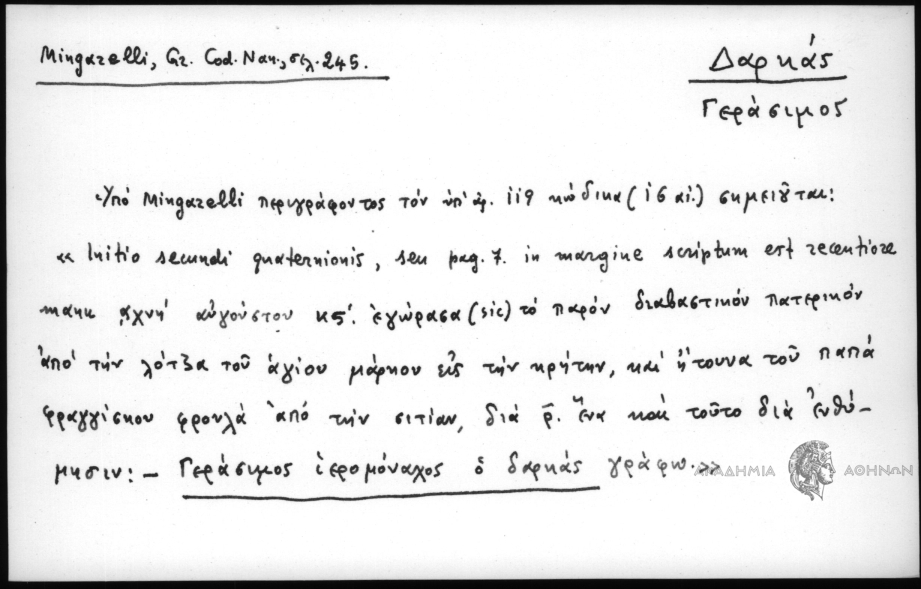 Mingarelli, Gr. Cod. Nan., σελ. 245.
Δαρκάς
Γεράσιμος
Ὑπό Mingarelli περιγράφοντος τόν ὑπ' ἀρ. 119 κώδικα (16 αἰ.) σημειοῦται:
« Initio secundi quaternionis, seu pag. 7. in margine scriptum est recentiore
manu ͵αχνή αὐγούστου κς΄. ἐγώρασα (sic) τό παρόν διαβαστικόν πατερικόν
ἀπό τήν λότζα τοῦ ἁγίου μάρκου εἰς τήν κρήτην, καί ἤτουνα τοῦ παπᾶ
φραγγίσκου φρουλά ἀπό τήν σιτίαν, διά ρ̄. ἕνα καί τοῦτο διά ἐνθύ-
μησιν: – Γεράσιμος ἱερομόναχος ὁ δαρκάς γράφω.»
ΑΚΑΔΗΜΙΑ ΑΘΗΝΩΝ